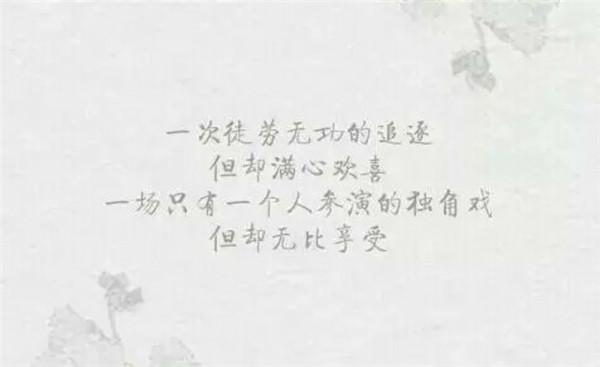 一次徒劳无功的追逐
但却满心欢喜
一场只有一个人参演的独角戏
但却无比享受